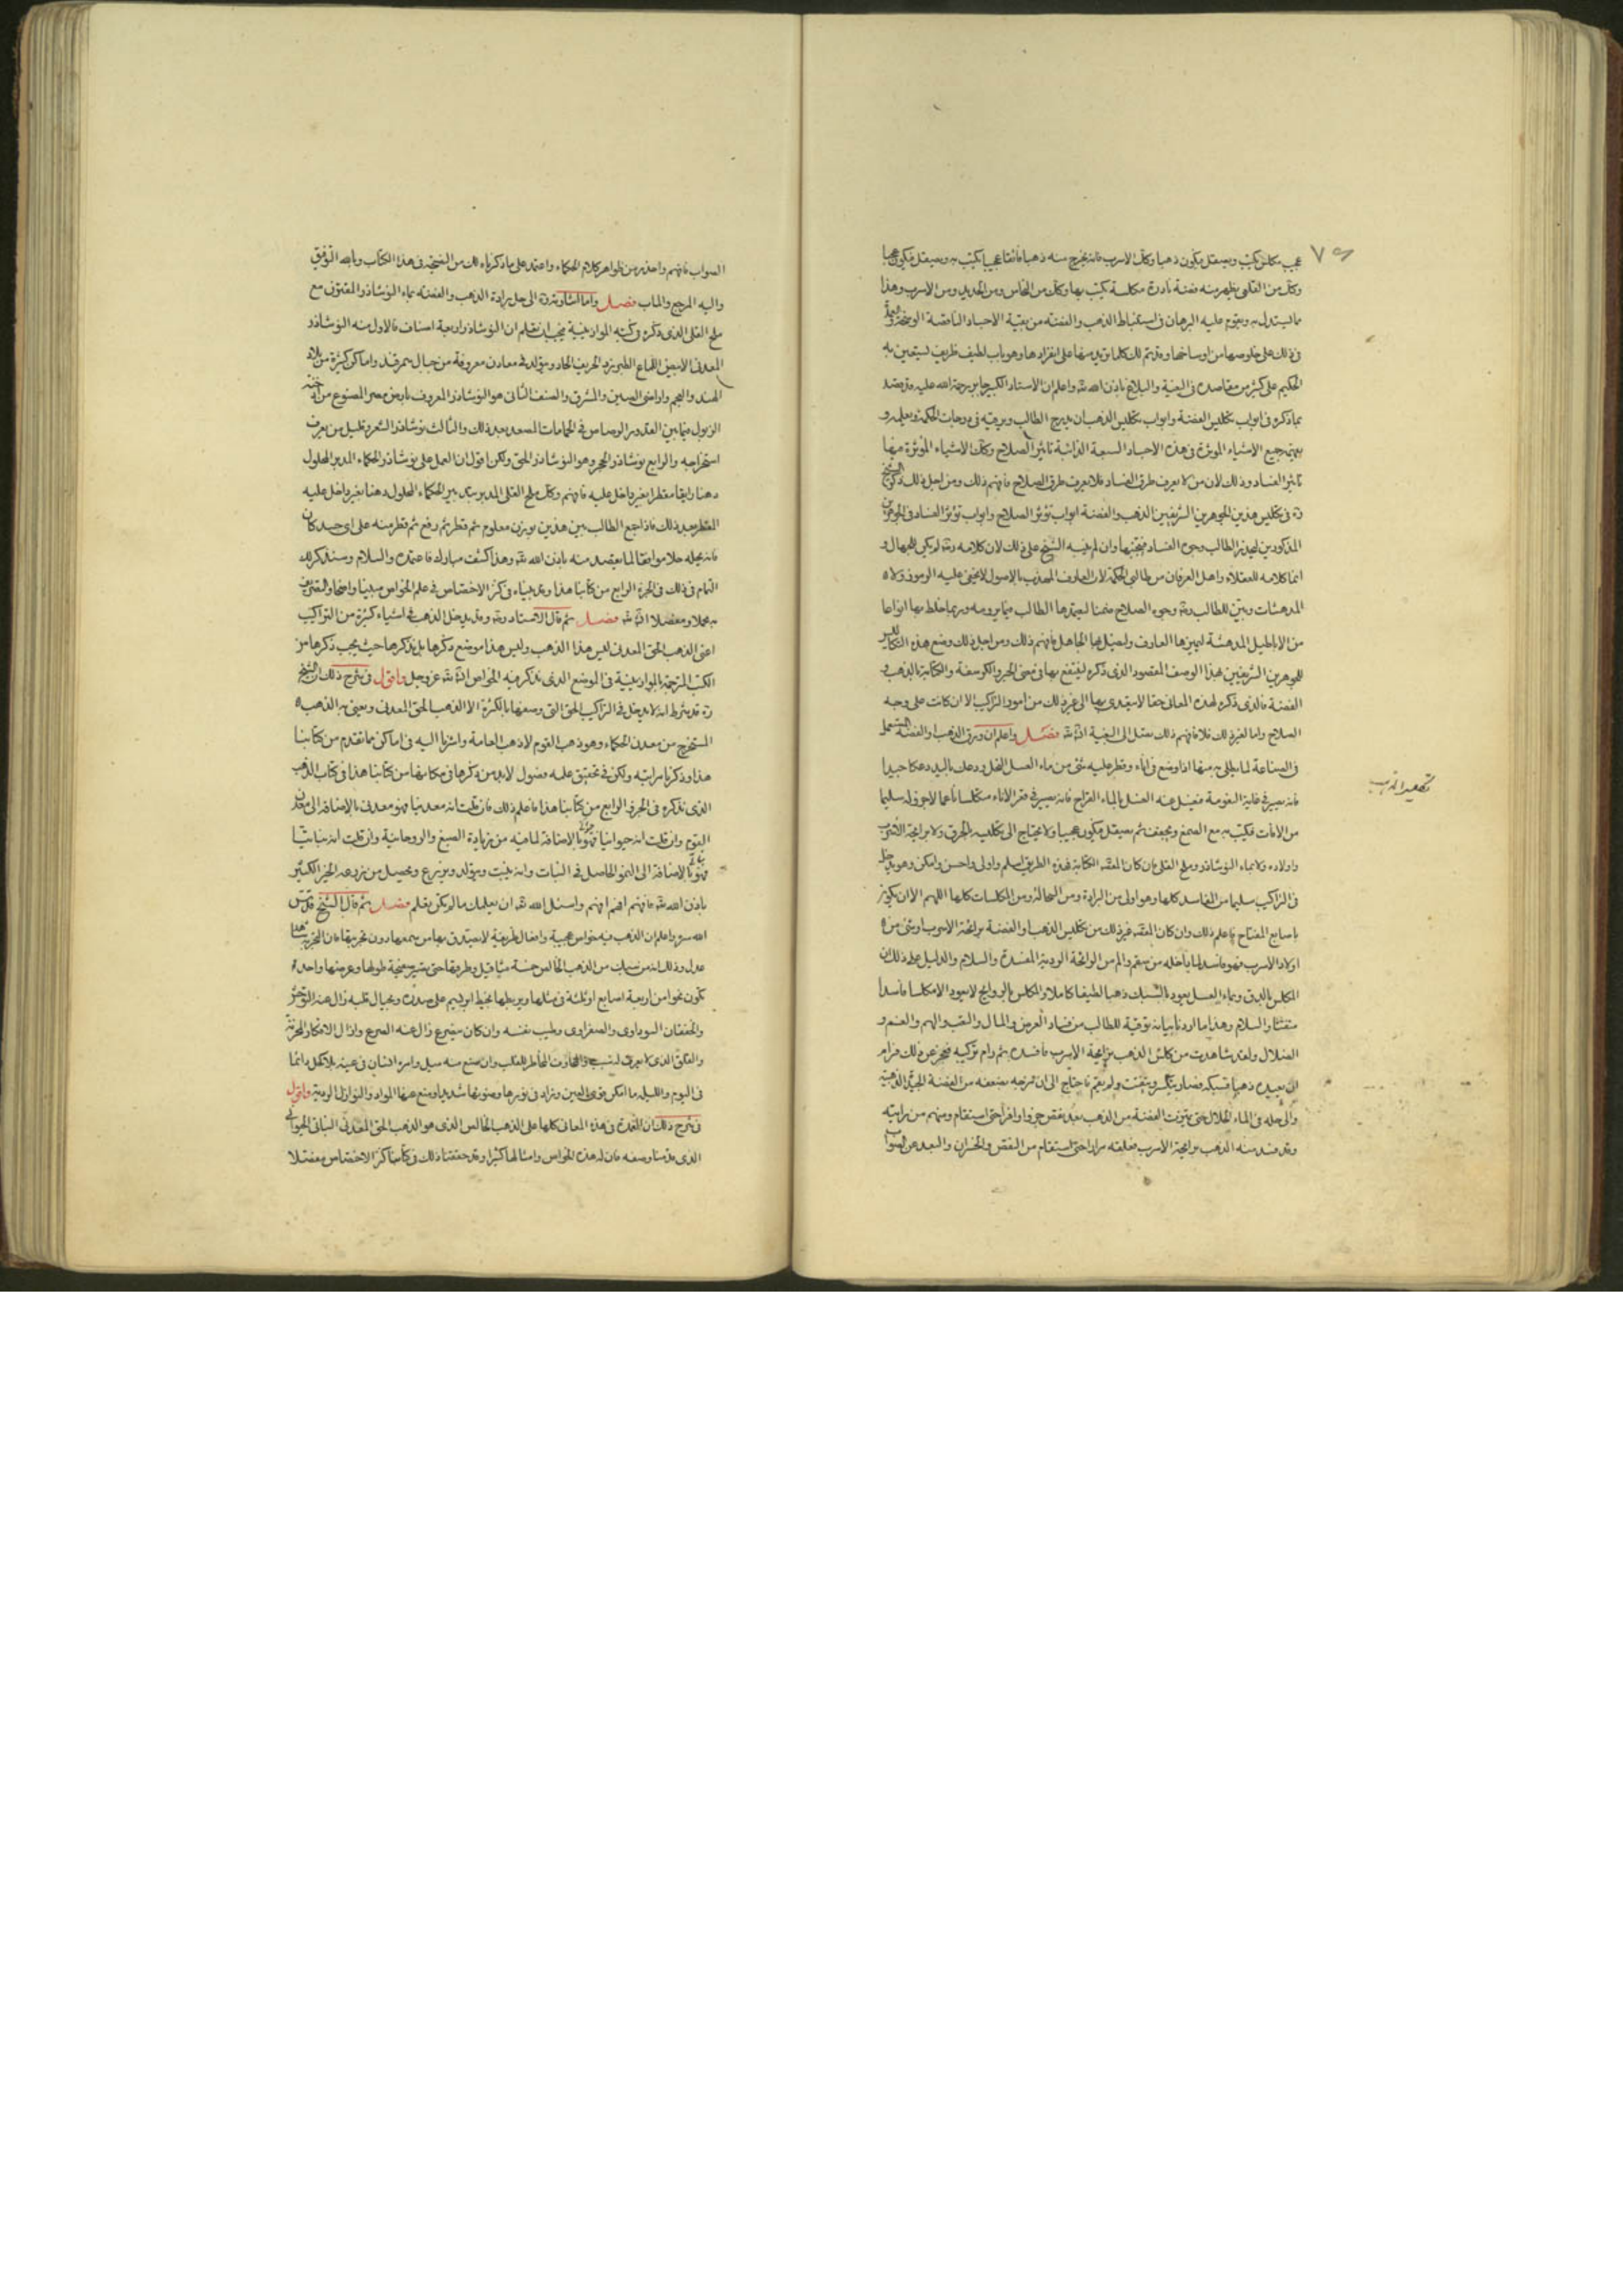 ٧٥
عجيب مكلس يكتب ويصقل يكون ذهبا وكذلك الاسرب فانه يخرج منه ذهبا فائقا عجيبا يكتب به ويصقل فيكون عجبا
وكذلك من القلعى يظهر منه فضة نادرة مكلسة يكتب بها وكذلك من النحاس ومن الحديد ومن الاسرب وهذا
مما يستدل به ويقوم عليه البرهان فى استنباط الذهب والفضة من بقية الاجساد الناقصة الوسخة
فى ذلك على خلوصها من اوساخها وقد يتم لك كلما تريد منها على انفرادها وهو باب لطيف ظريف يستعين به
الحكيم على كثير من مقاصده فى البغية والبلاغ باذن الله تعالى واعلم ان الاستاد الكبير جابر رحمة الله عليه قد قصد
بما ذكره فى ابواب تكليس الفضة وابواب تكليس الذهب ان يدرج الطالب ويرقيه فى درجات الحكمة ويعلمه
جميع الاشياء الموثرة فى هذه الاجساد السبعة الذائبة تاثير الصلاح وكذلك الاشياء الموثرة فيها
تاثير الفساد وذلك لان من لا يعرف طرق الفساد فلا يعرف طرق الصلاح فافهم ذلك ومن اجل ذلك ذكر الشيخ
فى تكليس هذين الجوهرين الشريفين الذهب والفضة ابواب تؤثر الصلاح وابواب تؤثر الفساد فى الجوهرين
المذكورين ليحذر الطالب وجوه الفساد فيجتنبها وان لم ينبه الشيخ على ذلك لان كلامه لم يكن للجهال و
انما كلامه للعقلاء واهل العرفان من طالبى الحكمة لان العارف المهذب بالاصول لا يخفى عليه الرموز ولا
المدهشات ويتبين للطالب وجوه الصلاح ضمنا ليعتبرها الطالب فيما يرومه وربما خلط بها انواعا
من الاباطيل المدهشة ليميزها العارف وليضل بها الجاهل فافهم ذلك ومن اجل ذلك وضع هذه التكاليس
للجوهرين الشريفين بهذا الوصف المقصود الذى ذكره لينتفع بها فى والكتابة بالذهب و
الفضة فالذى ذكره لهذه المعانى حقا لا يتعدى بها الى غير ذلك من امور التراكيب الا ان كانت على وجه
الصلاح واما لغير ذلك فلا فافهم ذلك تصل الى البغية ان شاء الله فصل واعلم ان ورق الذهب او الفضة المستعمل
فى الصناعة لما يطلى به منها اذا وضع فى اناء وقطر عليه شئ من ماء العسل النحل ودعك باليد دعكا جيدا
فانه يصير فى غاية النعومة فيغسل عنه العسل بالماء القراح فانه يصير فى قعر الاناء متكلسا ناعما لاجزائه سليما
من الافات فيكتب به مع الصمغ ويجفف ثم يصقل فيكون عجيبا ولا يحتاج الى تكليسه بالحرق ولا برايحة الاسرب
واولاده ولا بماء النوشادر وملح القلى فان كان القصد الكتابة فهذه الطريق اسلم واولى واحسن وامكن وهو يدخل
فى التراكيب سليما من المفاسد كلها وهو اولى من البرادة ومن السحالة ومن المكلسات كلها اللهم الا ان يكون
باصابع المفتاح فاعلم ذلك وان كان القصد غير ذلك من تكليس الذهب والفضة برائحة الاسرب او بشئ من
اولاد الاسرب فهو فاسد لما يدخله من سقم والم من الرائحة الردية المفسدة والسلام والدليل على ذلك ان
المكلس بالدق وبماء العسل يعود بالسبك ذهبا لطيفا كاملا والمكلس بالروايح لا يعود الا مكلسا فاسدا
متفتتا والسلام وهذا ما اردنا بيانه توقية للطالب من فساد الغرض والمال والتعب والهم والغم و
الضلال ولقد شاهدت من كلس الذهب برايحة الاسرب فافسده ثم رام تركيبه فعجز عن ذلك فرام
ان يعيده ذهبا فسبكه فصار يتكسر ويتفتت ولم يقم فاحتاج الى ان مزجه بضعفه من الفضة الجيدة الذهبية
والى حله فى الماء الحلال حتى تبرئت الفضة من الذهب بعد نقص جزوا وافرا حتى استقام ومنهم من رايته
وقد فسد منه الذهب برايحة الاسرب فعلقه مرارا حتى استقام من النقص والخسران والبعد عن الصواب
تصعيد الذهب
الصواب فافهم واحذر من ظواهر كلام الحكماء واعتمد على ما ذكرناه لك من النتيجة فى هذا الكتاب وبالله التوفيق
واليه المرجع والماب فصل واما اشارته الى حل برادة الذهب والفضة بماء النوشادر المعقود مع
ملح القلى الذى ذكره فى كتبه الموازينية فيجب ان تعلم ان النوشادر اربعة اصناف فالاول منه النوشادر
المعدنى الابيض اللماع الطبرزد الحريف الحاد ويتولد فى معادن معروفة من جبال سمرقند واماكن كثيرة من بلاد
الهند والعجم واراضى الصين والمشرق والصنف الثانى هو النوشادر المعروف بارض مصر المصنوع من ادخنة
الزبول فيما بين القدور الرصاص فى الحمامات المصعد بعد ذلك والثالث نوشادر الشعر وقليل من يعرف
استخراجه والرابع نوشادر الحجر وهو النوشادر الحق ولكن اقول ان العمل على نوشادر الحكماء المدبر المحلول
دهنا رايقا مقطرا بغير داخل عليه فافهم وكذلك ملح القلى المدبر بتدبير الحكماء المحلول دهنا بغير داخل عليه
المقطر بعد ذلك فاذا جمع الطالب بين هذين بوزن معلوم ثم قطر ثم رفع ثم قطر منه على اى جسد كان
فانه يحله حلا موافقا لما يقصد منه باذن الله تعالى وهذا كشف مبارك فاعتمده والسلام وسنذكر لك
التمام فى ذلك فى الجزء الرابع من كتابنا هذا وقد بيناه فى كنز الاختصاص فى علم الخواص مبينا واضحا
مجملا ومفصلا ان شاء الله فصل ثم قال الاستاد وقد يدخل الذهب فى اشياء كثيرة من التراكيب
اعنى الذهب الحق المعدنى ليس هذا الذهب وليس هذا موضع ذكرها بل نذكرها حيث يجب ذكرها من
الكتب المترجمة بالموازينية فى الموضع الذى نذكر فيه الخواص ان شاء الله عز وجل واقول فى شرح ذلك ان الشيخ
قد شرط انه لا يدخل فى التراكيب الحق التى وصفها بالكثرة الا الذهب الحق المعدنى ويعنى به الذهب
المستخرج من معدن الحكماء وهو ذهب القوم لا ذهب العامة واشرنا اليه فى اماكن مما تقدم من كتابنا
هذا وذكرنا مراتبه ولكن فى تحقيق علمه فصول لا بد من ذكرها فى مكانها من كتابنا هذا فى كتاب الذهب
الذى نذكره فى الجزء الرابع من كتابنا هذا فاعلم ذلك فان قلت انه معدنيا فهو معدنى بالاضافة الى معدن
القوم وان قلت انه حيوانيا فهو بالاضافة لما فيه من زيادة الصبغ والروحانية وان قلت انه نباتيا
فهو بالاضافة الى النمو الحاصل فى النبات وانه ينبت ويتولد ويزرع ويحصل من زرعه الخير الكثير
باذن الله تعالى فافهم افهم افهم واسئل الله تعالى ان يعلمك ما لم تكن تعلم فصل ثم قال الشيخ قدس
الله سره واعلم ان الذهب فيه خواص عجيبة وافعال ظريفة لا يصدق بها من يسمعها دون تجربتها فان التجربة
عدل وذلك انه من سبك من الذهب الخالص خمسة مثاقيل وطرقها حتى تصير صفيحة طولها وعرضها واحد
تكون نحوا من اربعة اصابع او ثلثة فى مثلها ويربطها بخيط ابريسم على صدره وبحيال قلبه زال عنه التوحش
والخفقان السوداوى والصفراوى وطيب نفسه وان كان يصرع زال عنه الصرع وازال الافكار المحزنة
والقلق الذى لا يعرف له سبب والمخاوف المخاطر للقلب وان صنع منه ميل وامره انسان فى عينه بلا كحل دائما
فى اليوم والليلة ما امكن قوى العين وزاد فى نورها وضوئها شديدا ومنع عنها المواد والنوازل الردية واقول
فى شرح ذلك ان العمدة فى هذه المعانى كلها على الذهب الخالص الذى هو الذهب الحق المعدنى النباتى الحيوانى
الذى قدمنا وصفه فان له هذه الخواص وامثالها كثيرا وقد حققنا ذلك فى كتابنا كنز الاختصاص مفصلا